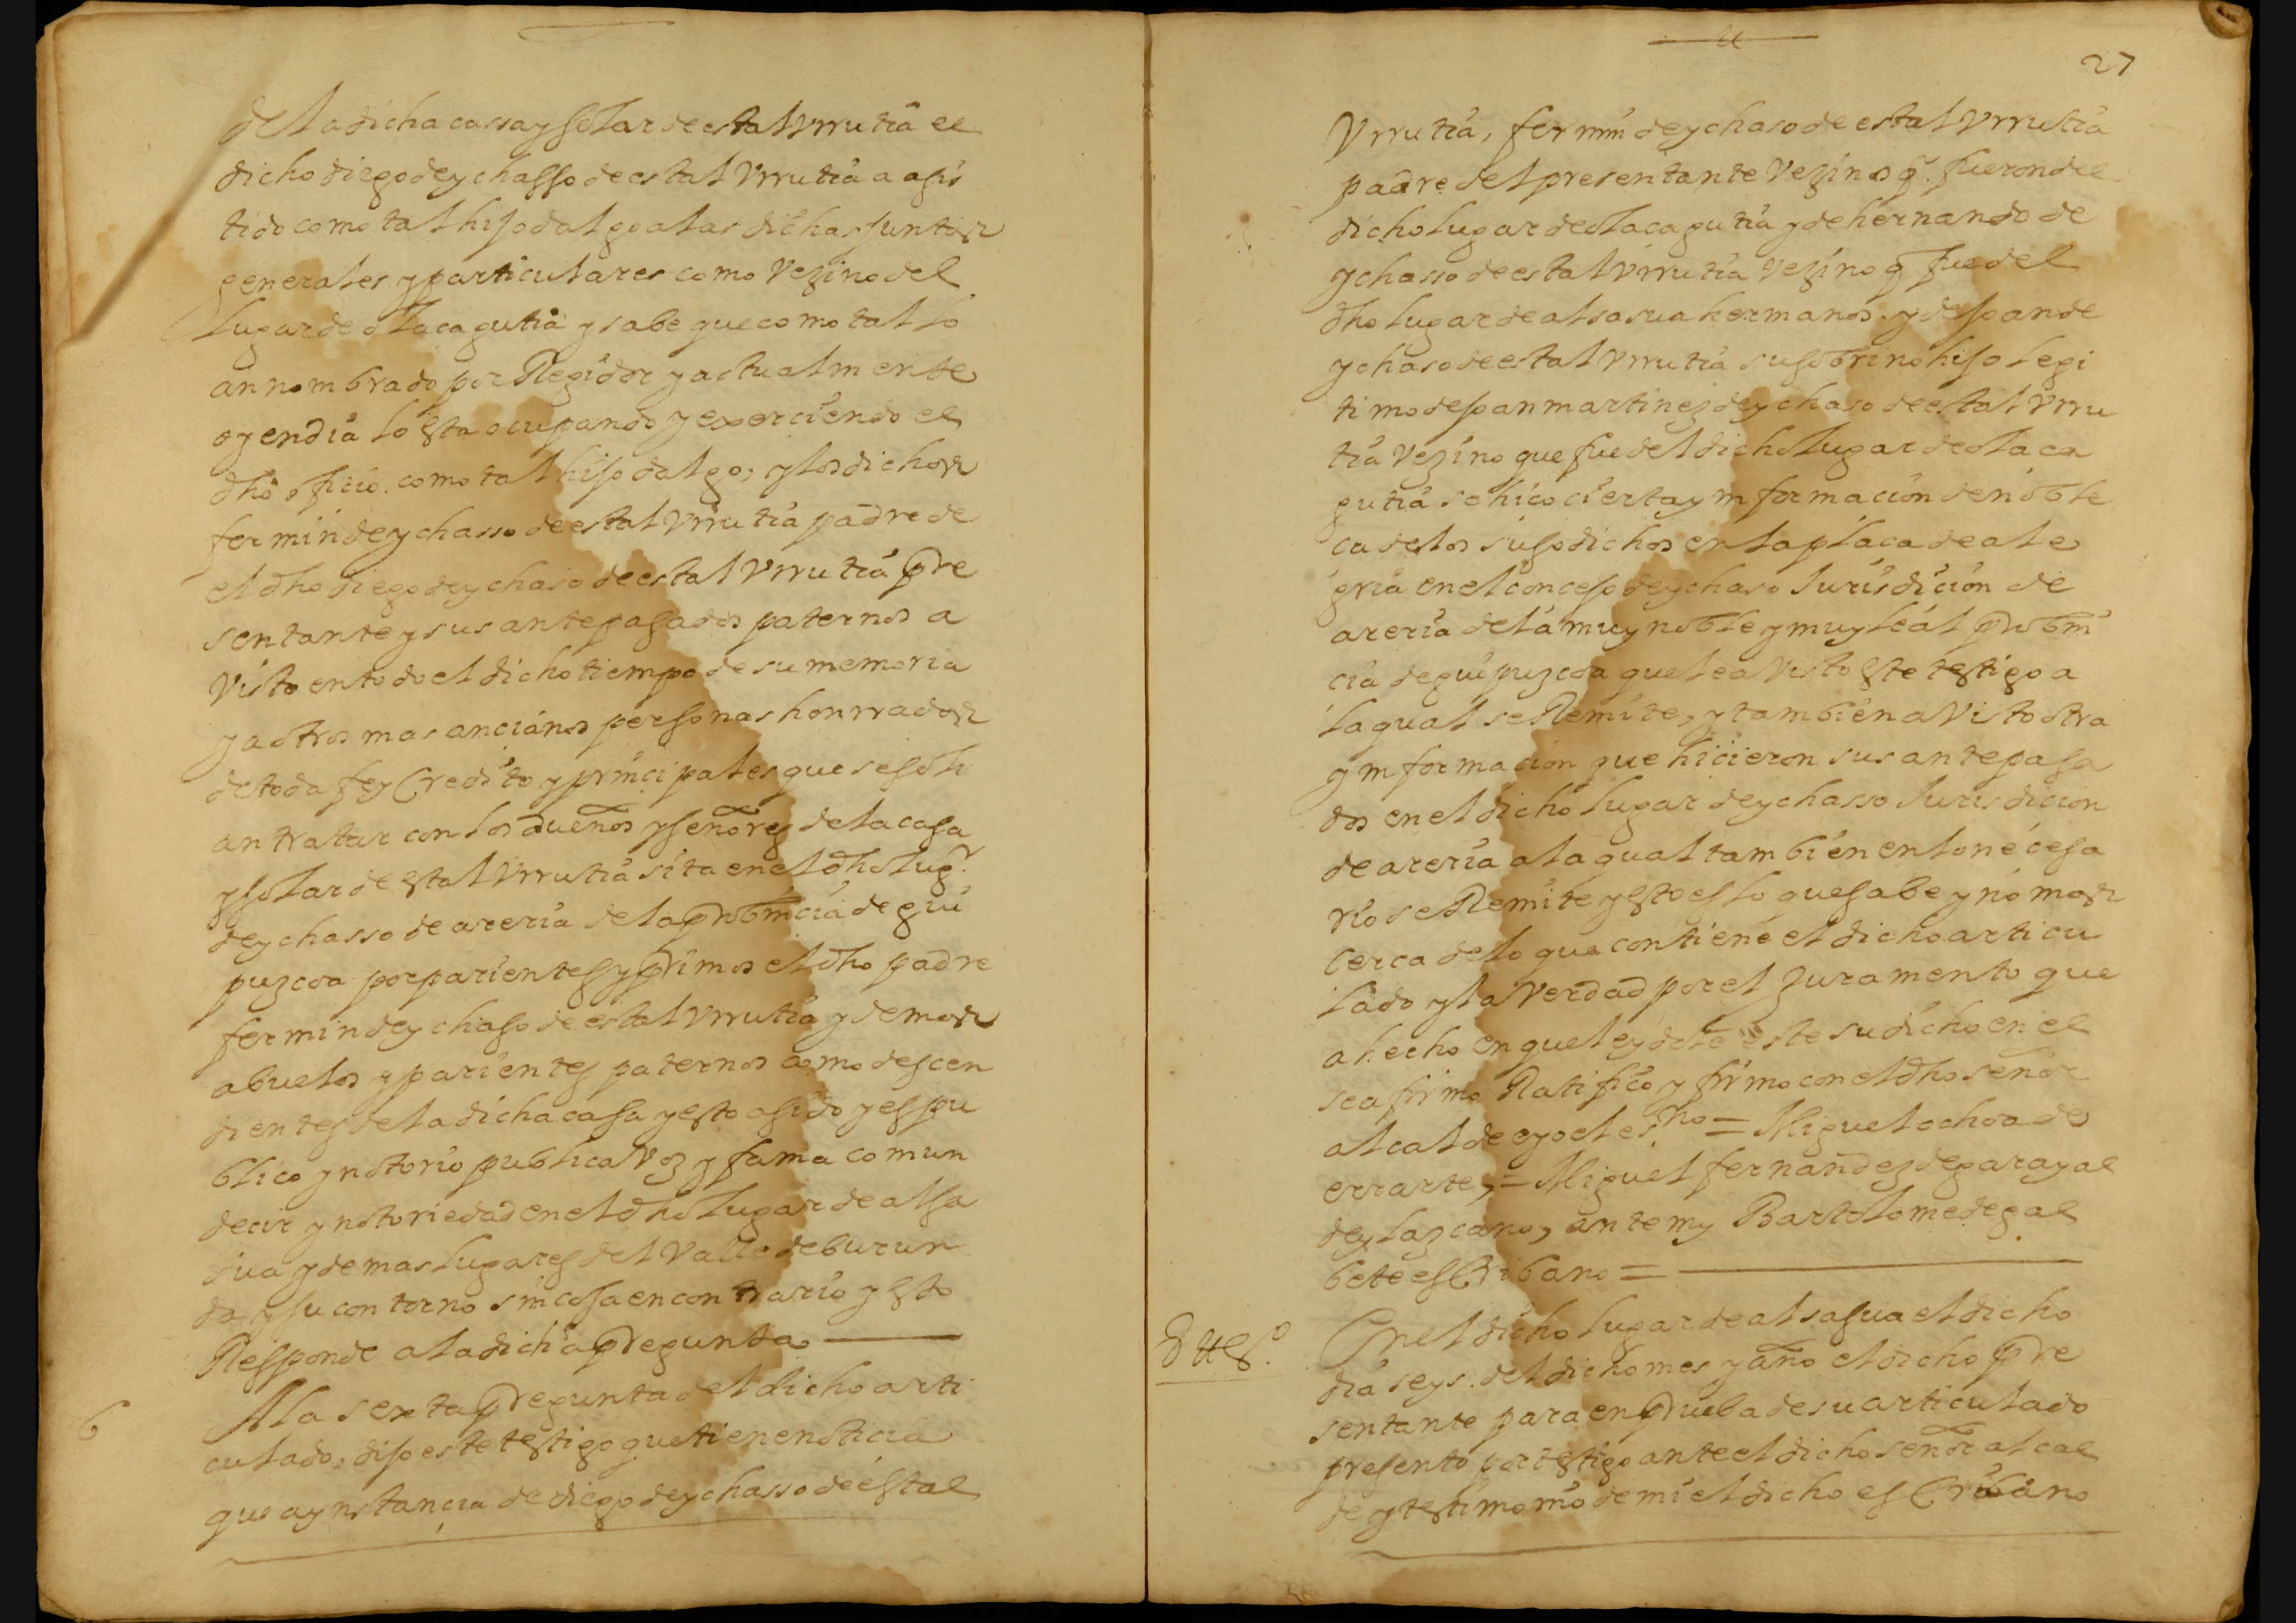 de la dicha cassa y solar de estal Vrrutia el
dicho diego de ychasso de estal Vrrutia a asis
tido como tal hijodalgo a las dichas juntas
generales y particulares como Vezino del
lugar de olacagutia y sabe que como tal lo
an nombrado por Regidor y actualmente
oy en dia lo esta ocupando y exerciendo el
dho oficio. como tal hijodalgo; y los dichos
fermin de ychasso de estal Vrrutia padre de
el dho diego de ychaso de estal Vrrutia pre
sentante y sus antepasados paternos a
Visto en todo el dicho tiempo de su memoria
y a otros mas ancianos personas honrrados
de toda fey Credito y principales que se soli
an tratar con los dueños y señores de la casa
y solar de estal Vrrutia sita en el dho lugr
de ychasso de areria de la probincia de gui
puzcoa por parientes y primos el dho padre
fermin de ychaso de estal Vrrutia y demas
abuelos y parientes paternos como descen
dientes de la dicha casa y esto a sido y es pu
blico y notorio publica Voz y fama comun
decir y notoriedad en el dho lugar de alsa
sua y demas lugares del Valle de burun
da y su contorno sin cosa en contrario y esto
Responde a la dicha pregunta
6
A la sexta pregunta del dicho arti
culado, dijo este testigo que tiene noticia
que a ynstancia de diego de ychasso de estal
27
Vrrutia, fermin de ychaso de estal Vrrutia
padre del presentante Vezinos q. fueron del
dicho lugar de olacagutia y de hernando de
ychasso de estal Vrrutia Vezino q fue del
dho lugar de alsasua hermanos. y de joan de
ychaso de estal Vrrutia su sobrino hijo legi
timo de joan martinez de ychaso de estal Vrru
tia Vezino que fue del dicho lugar de olaca
gutia se hico cierta ynformacion de noble
ca de los susodichos en la placa de ale
gria en el concejo de ychaso Jurisdicion de
areria de la muy noble y muy leal probin
cia de guipuzcoa que le a Visto este testigo a
la qual se Remite, y tambien a Visto otra
ynformacion que hicieron sus antepasa
dos en el dicho lugar de ychasso Jurisdicion
de areria a la qual tambien en lo necesa
rio se Remite y esto es lo que sabe y no mas
cerca de lo que contiene el dicho articu
lado y la Verdad por el Juramento que
a hecho en que leydole este su dicho en el
se afirmo Ratifico y firmo con el dho señor
alcalde e yo el esno = Miguel ochoa de
errarte, = Miguel fernandez de garayal
de y lazcano, ante my Bartolome de gal
bete esCribano =
8 ttesº.
En el dicho lugar de alsasua el dicho
dia seys. del dicho mes y año el dicho pre
sentante para en prueba de su articulado
presento por testigo ante el dicho señor alcal
de y testimonio de mi el dicho esCribano